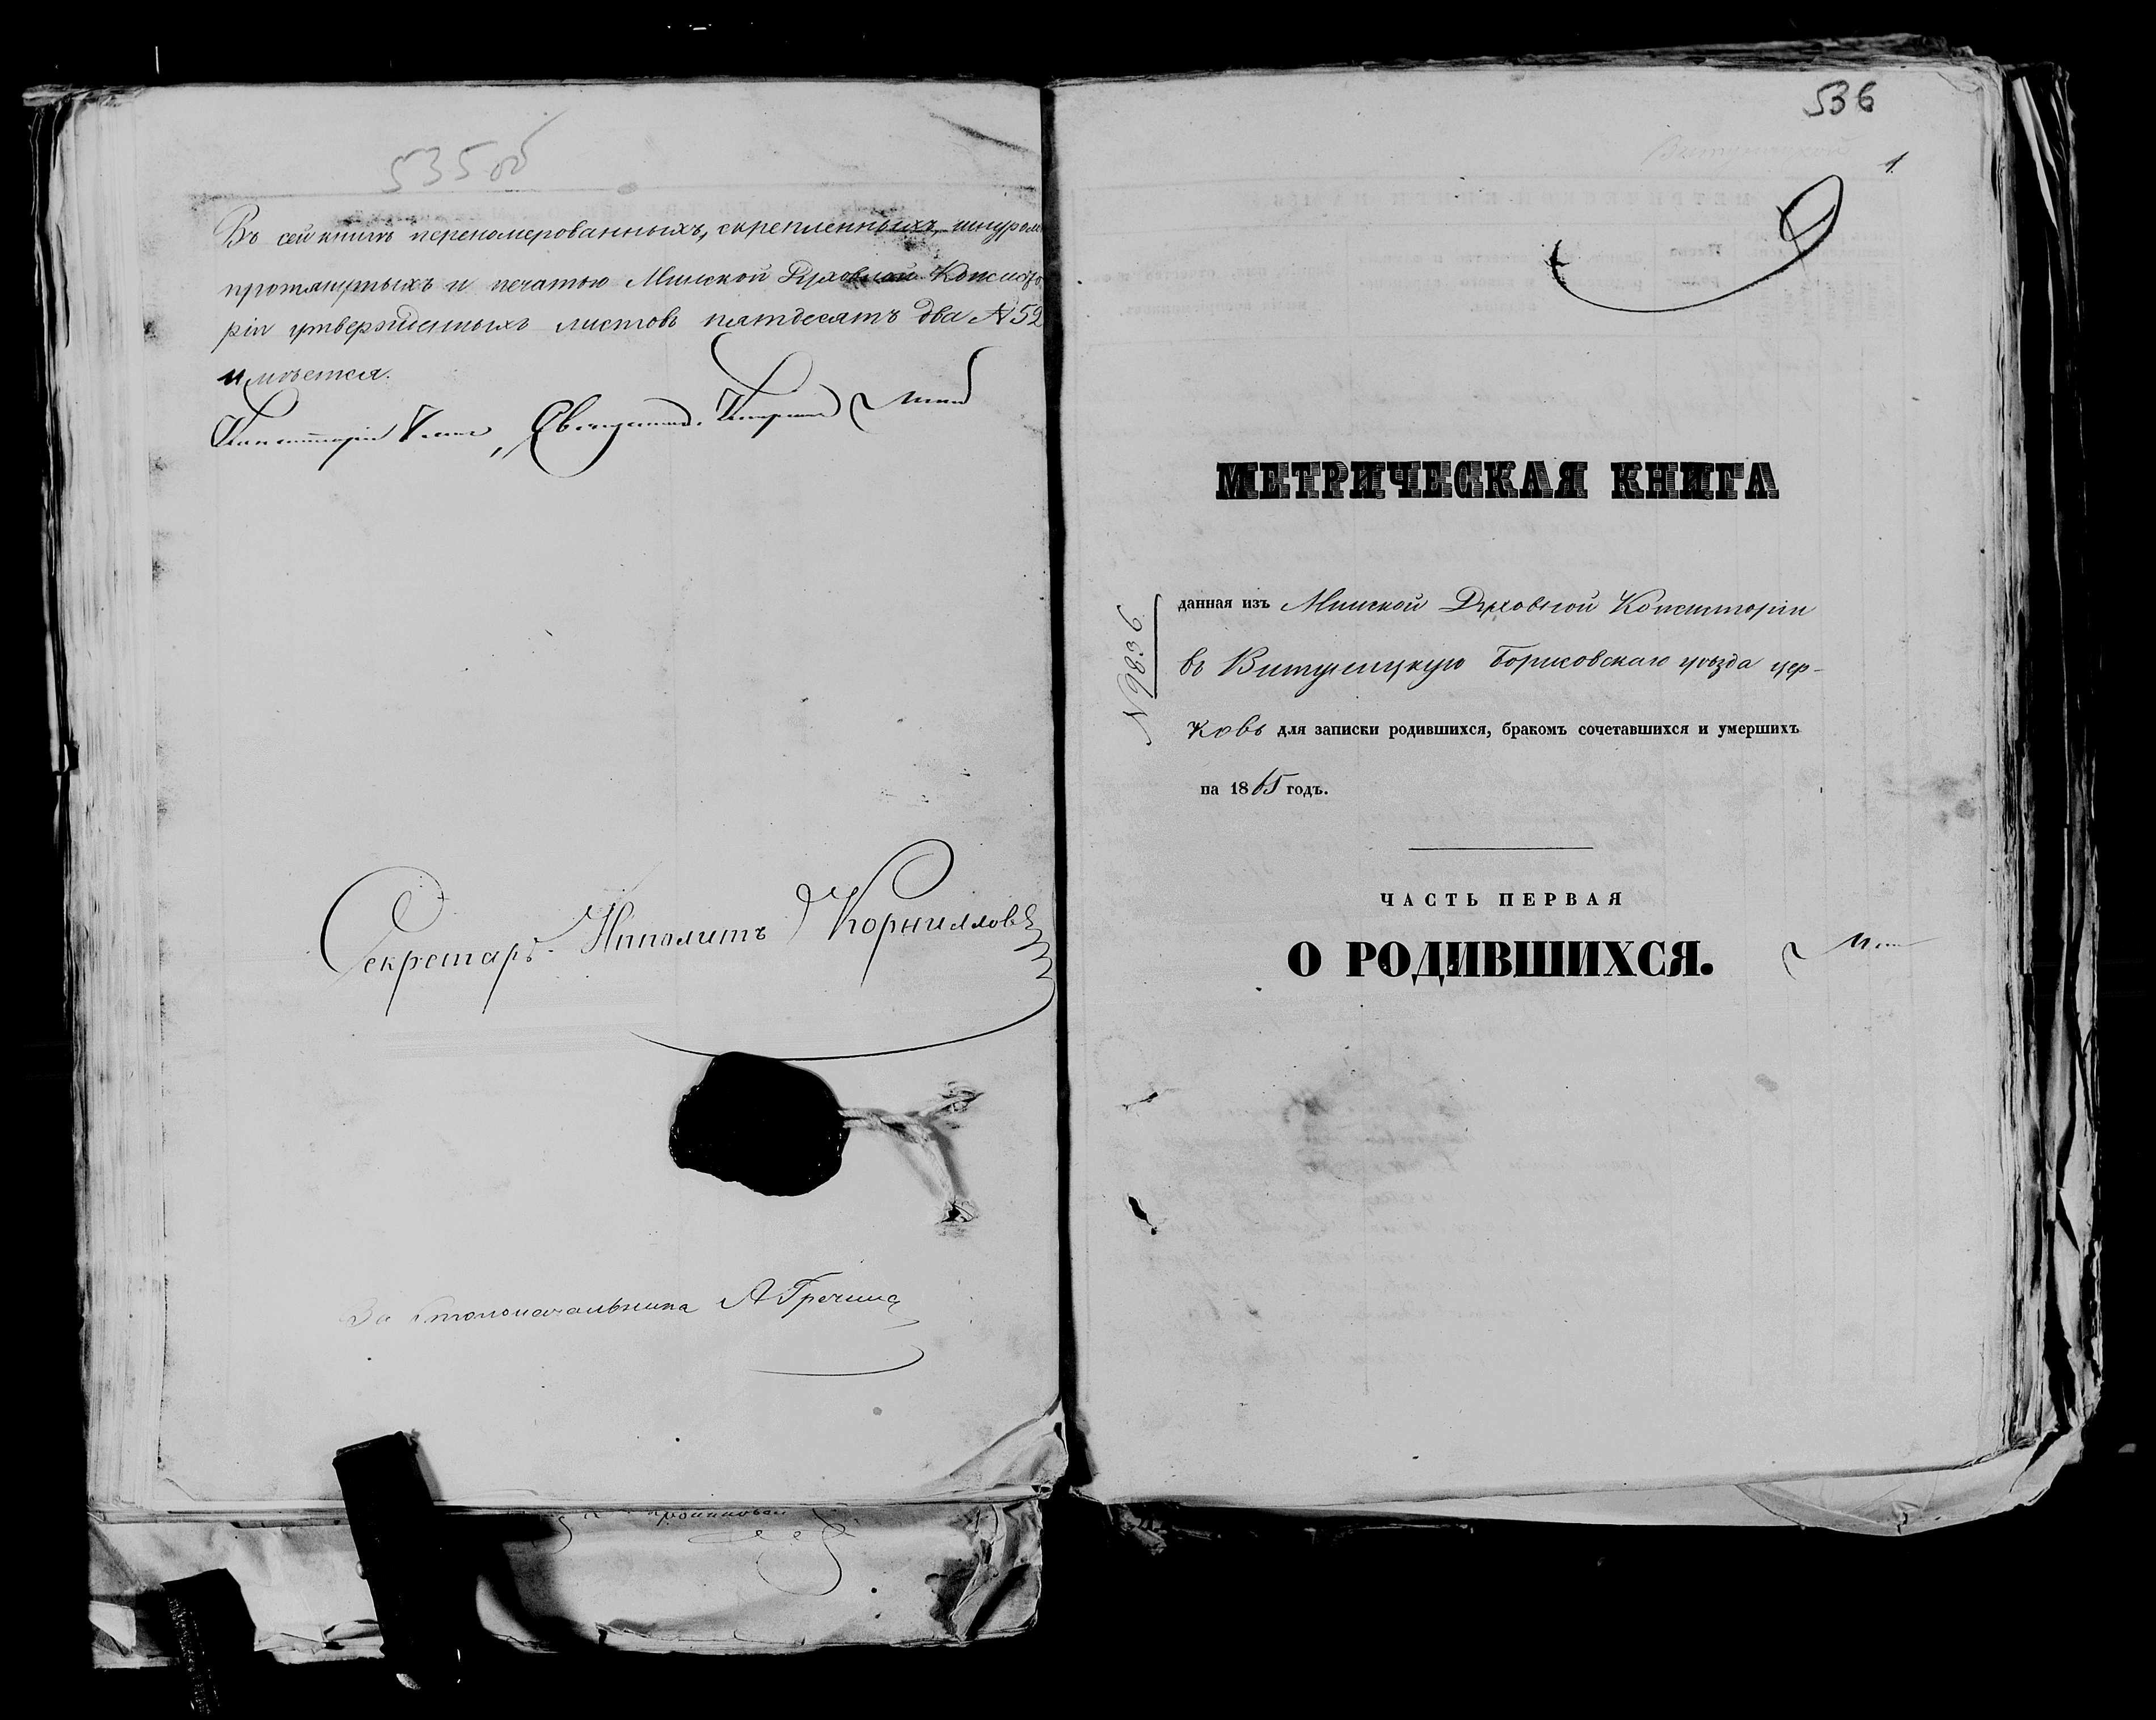 535об
Въ сей книгѣ переномерованныхъ, скрепленныхъ, шнуром
протянутыхъ и печатью Минской Духовной Консисто
ріи утвержденныхъ листовъ пятдесятъ два № 52
имѣется.
Консисторіи Членъ, Священникъ
Секретарь Ипполитъ Корниллов
За Столоначальника А Гречина
536
1.
МЕТРИЧЕСКАЯ КНИГА
№ 9836
данная изъ Минской Духовной Консисторіи
въ Витуницкую Борисовскаго уѣзда цер-
ковь для записки родившихся, бракомъ сочетавшихся и умершихъ
на 1865 годъ.
ЧАСТЬ ПЕРВАЯ
О РОДИВШИХСЯ.